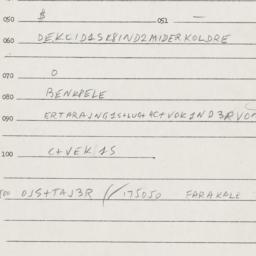 050 $ 051 —
DEKLID1SK8IND2MIDERKOLDRE
070 0
080 BENK8ELE
090 ERTARAJNG1S+LUG+4C+VOK1ND3RVO
100 C+VEK 1S
OJS+TAJ3R // 175050 FARAKALE